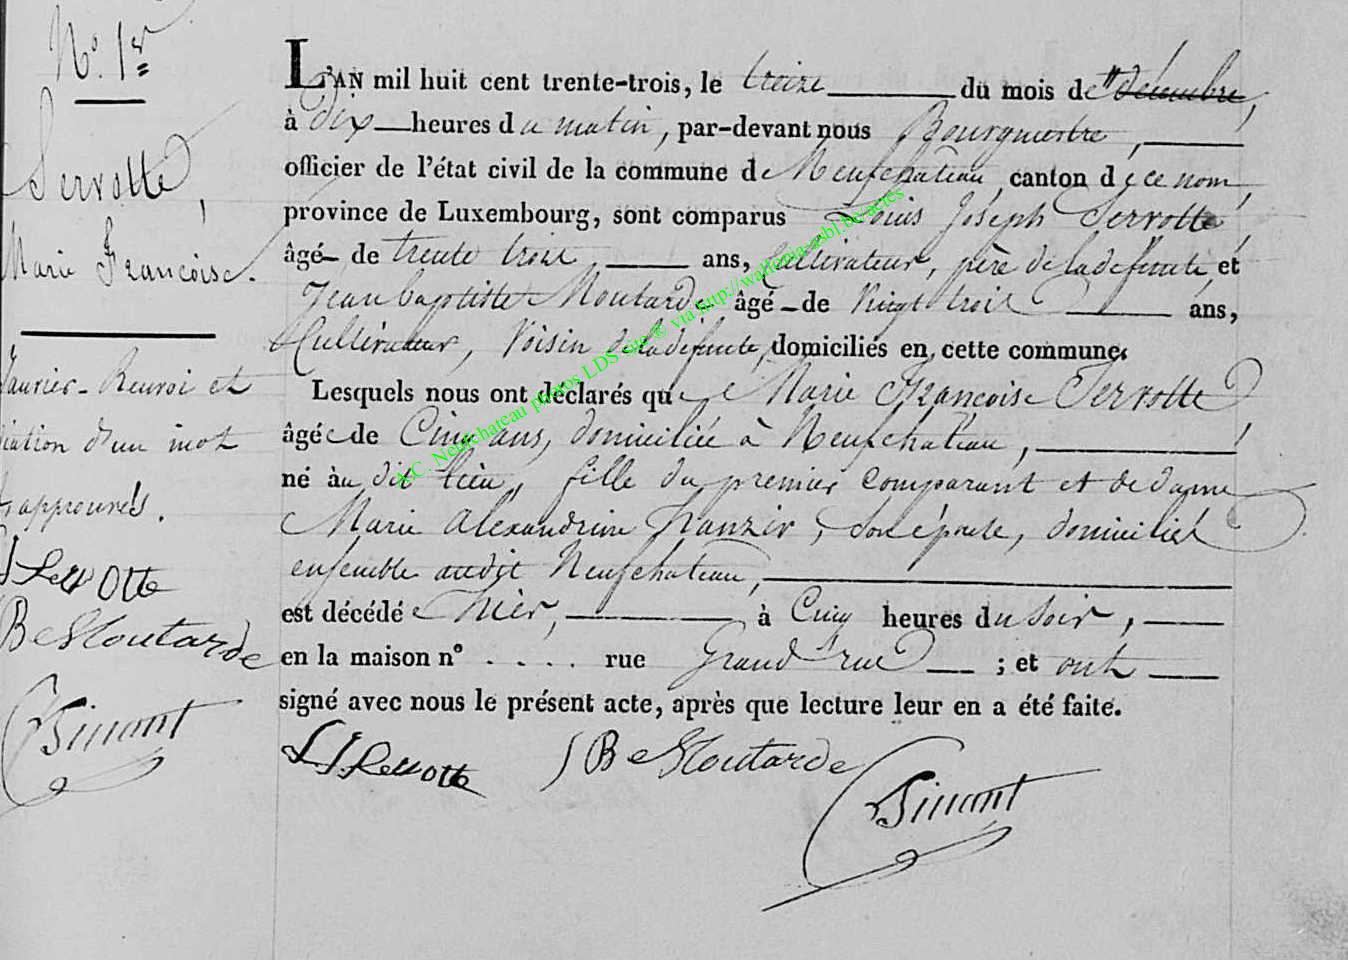 N.° 1er
Servotte,
Marie Françoise.
Janvier - Renvoi et
diation d'un mot
approuvés.
LJ Servotte
JB Moutarde
Simont
L'AN mil huit cent trente-trois, le treize du mois de décembre,
à dix heures du matin, par-devant nous Bourgmestre,
officier de l'état civil de la commune de Neufchateau, canton de ce nom,
province de Luxembourg, sont comparus Louis Joseph Servotte
âgé de trente trois ans, Cultivateur, père de la défunte et
Jean Baptiste Moutarde âgé de Vingt trois ans,
Cultivateur, Voisin de la défunte, domiciliés en cette commune.
Lesquels nous ont déclarés que Marie Françoise Servotte
âgée de Cinq ans, domiciliée à Neufchateau,
né au dit lieu, fille du premier comparant et de dame
Marie Alexandrine, Son épouse, domiciliés
ensemble audit Neufchateau,
est décédée hier, à Cinq heures du Soir,
en la maison n° . . . . rue Grand'rue ; et ont
signé avec nous le présent acte, après que lecture leur en a été faite.
LJ Servotte JB Moutarde Simont
A.C. Neufchateau photos LDS Site ® via http://wallonia-asbl.be/actes